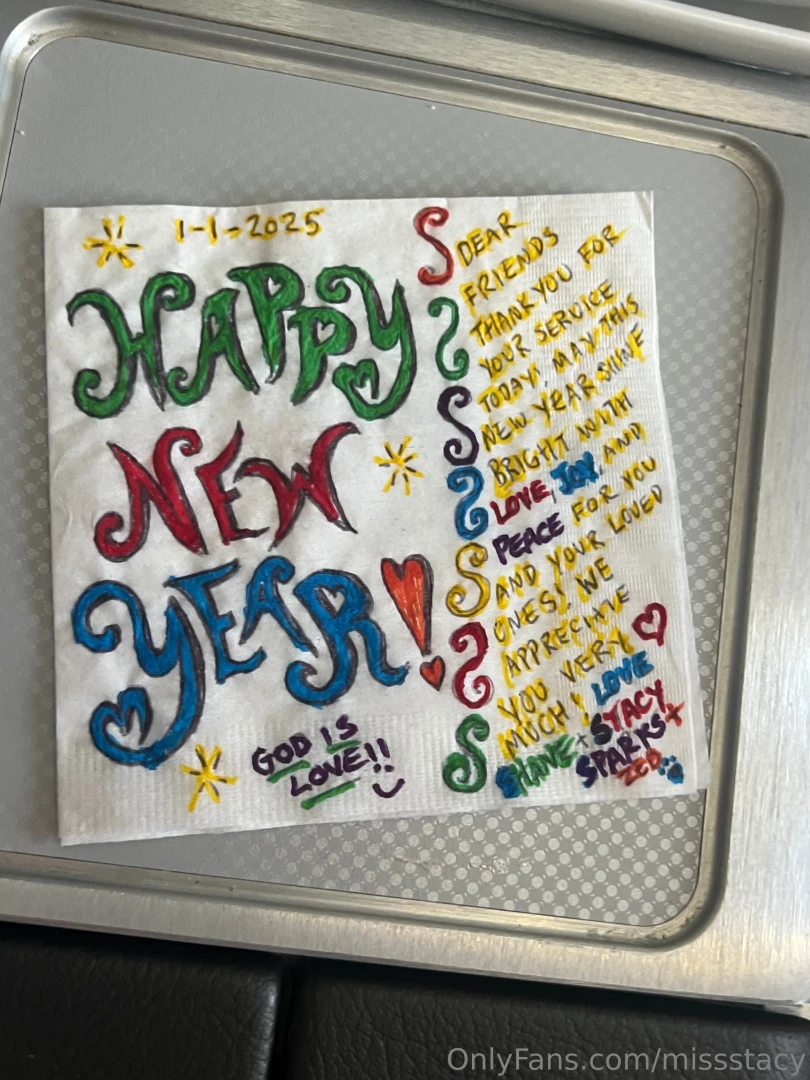 1-1-2025
HAPPY
NEW
YEAR!
GOD IS
LOVE!!
DEAR
FRIENDS
THANK YOU FOR
YOUR SERVICE
TODAY! MAY THIS
NEW YEAR SHINE
BRIGHT WITH
LOVE, JOY, AND
PEACE FOR YOU
AND YOUR LOVED
ONES! WE
APPRECIATE
YOU VERY
MUCH! LOVE
SHANE + STACY
SPARKS +
ZED
OnlyFans.com/missstacy